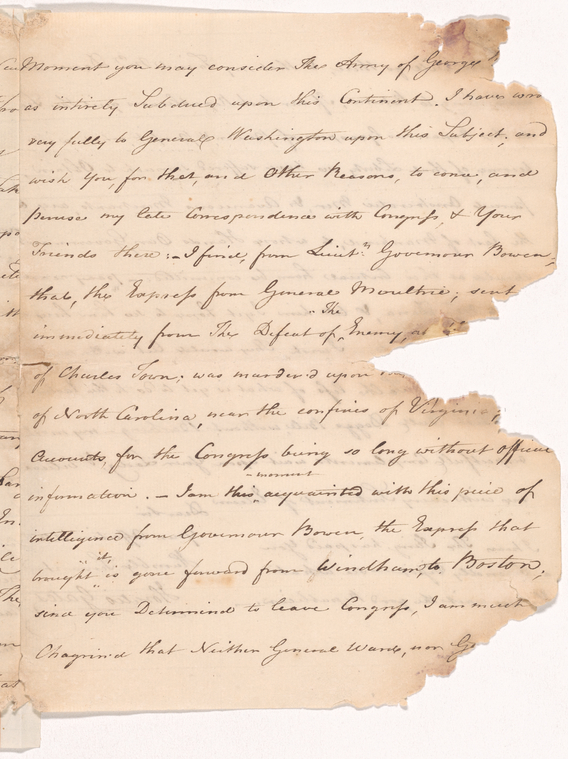 Moment you may consider the Army of George
as intirely Subdued upon this Continent. I have
very fully to General Washington upon this Subject, and
wish You, for that, and Other Reasons, to come, and
peruse my late Correspondence with Congress, & Your
Friends there:– I find, from Lieut. Governour Bowen,
that, the Express from General Moultrie, sent
The
immediately from The Defeat of Enemy, as
of Charles Town; was murder'd upon
of North Carolina, near the confines of Virginia,
Accounts, for the Congress being so long without Officiae
moment
information. – I am this acquainted with this piece of
intelligence from Governour Bowen, the Express that
it
brought is gone forward from Windham, to Boston;
since you Determind to leave Congress, I am much
Chagrined that Neither General Ward, nor